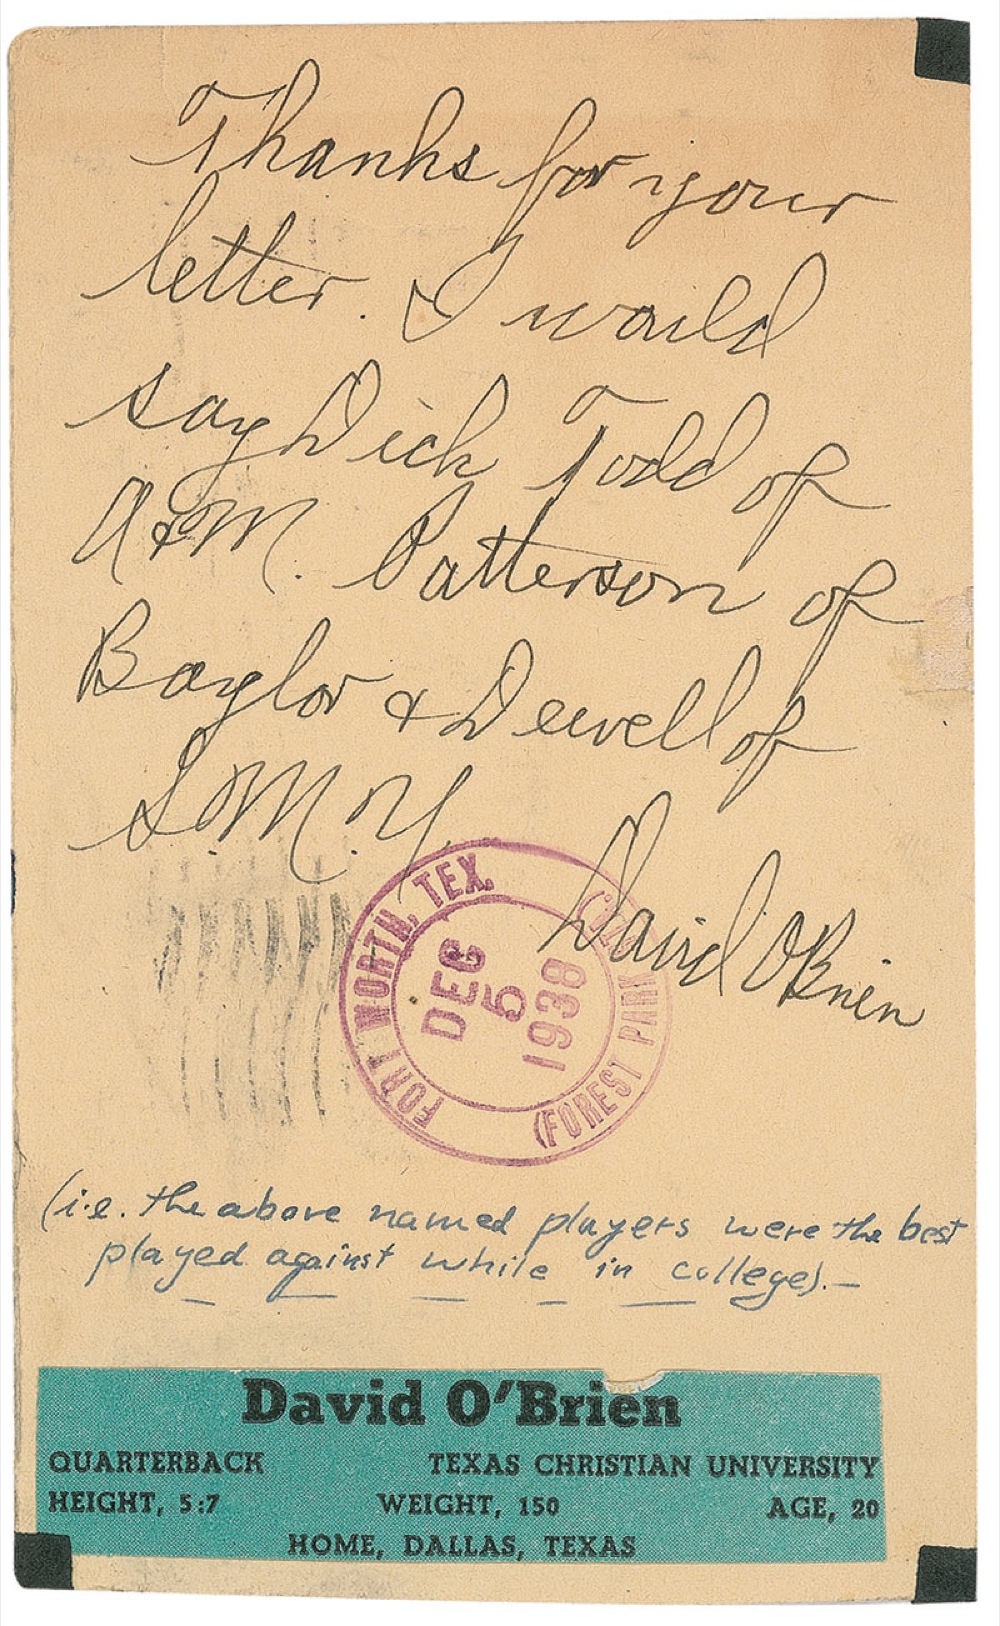 Thanks for your
letter. I would
say Dick Todd of
A & M. Patterson of
Baylor & Dewell of
S.M.U.
David O'Brien
FORT WORTH, TEX.
DEC
5
1938
(FOREST PARK
(i.e. the above named players were the best
played against while in college). —
David O'Brien
QUARTERBACK TEXAS CHRISTIAN UNIVERSITY
HEIGHT, 5:7 WEIGHT, 150 AGE, 20
HOME, DALLAS, TEXAS